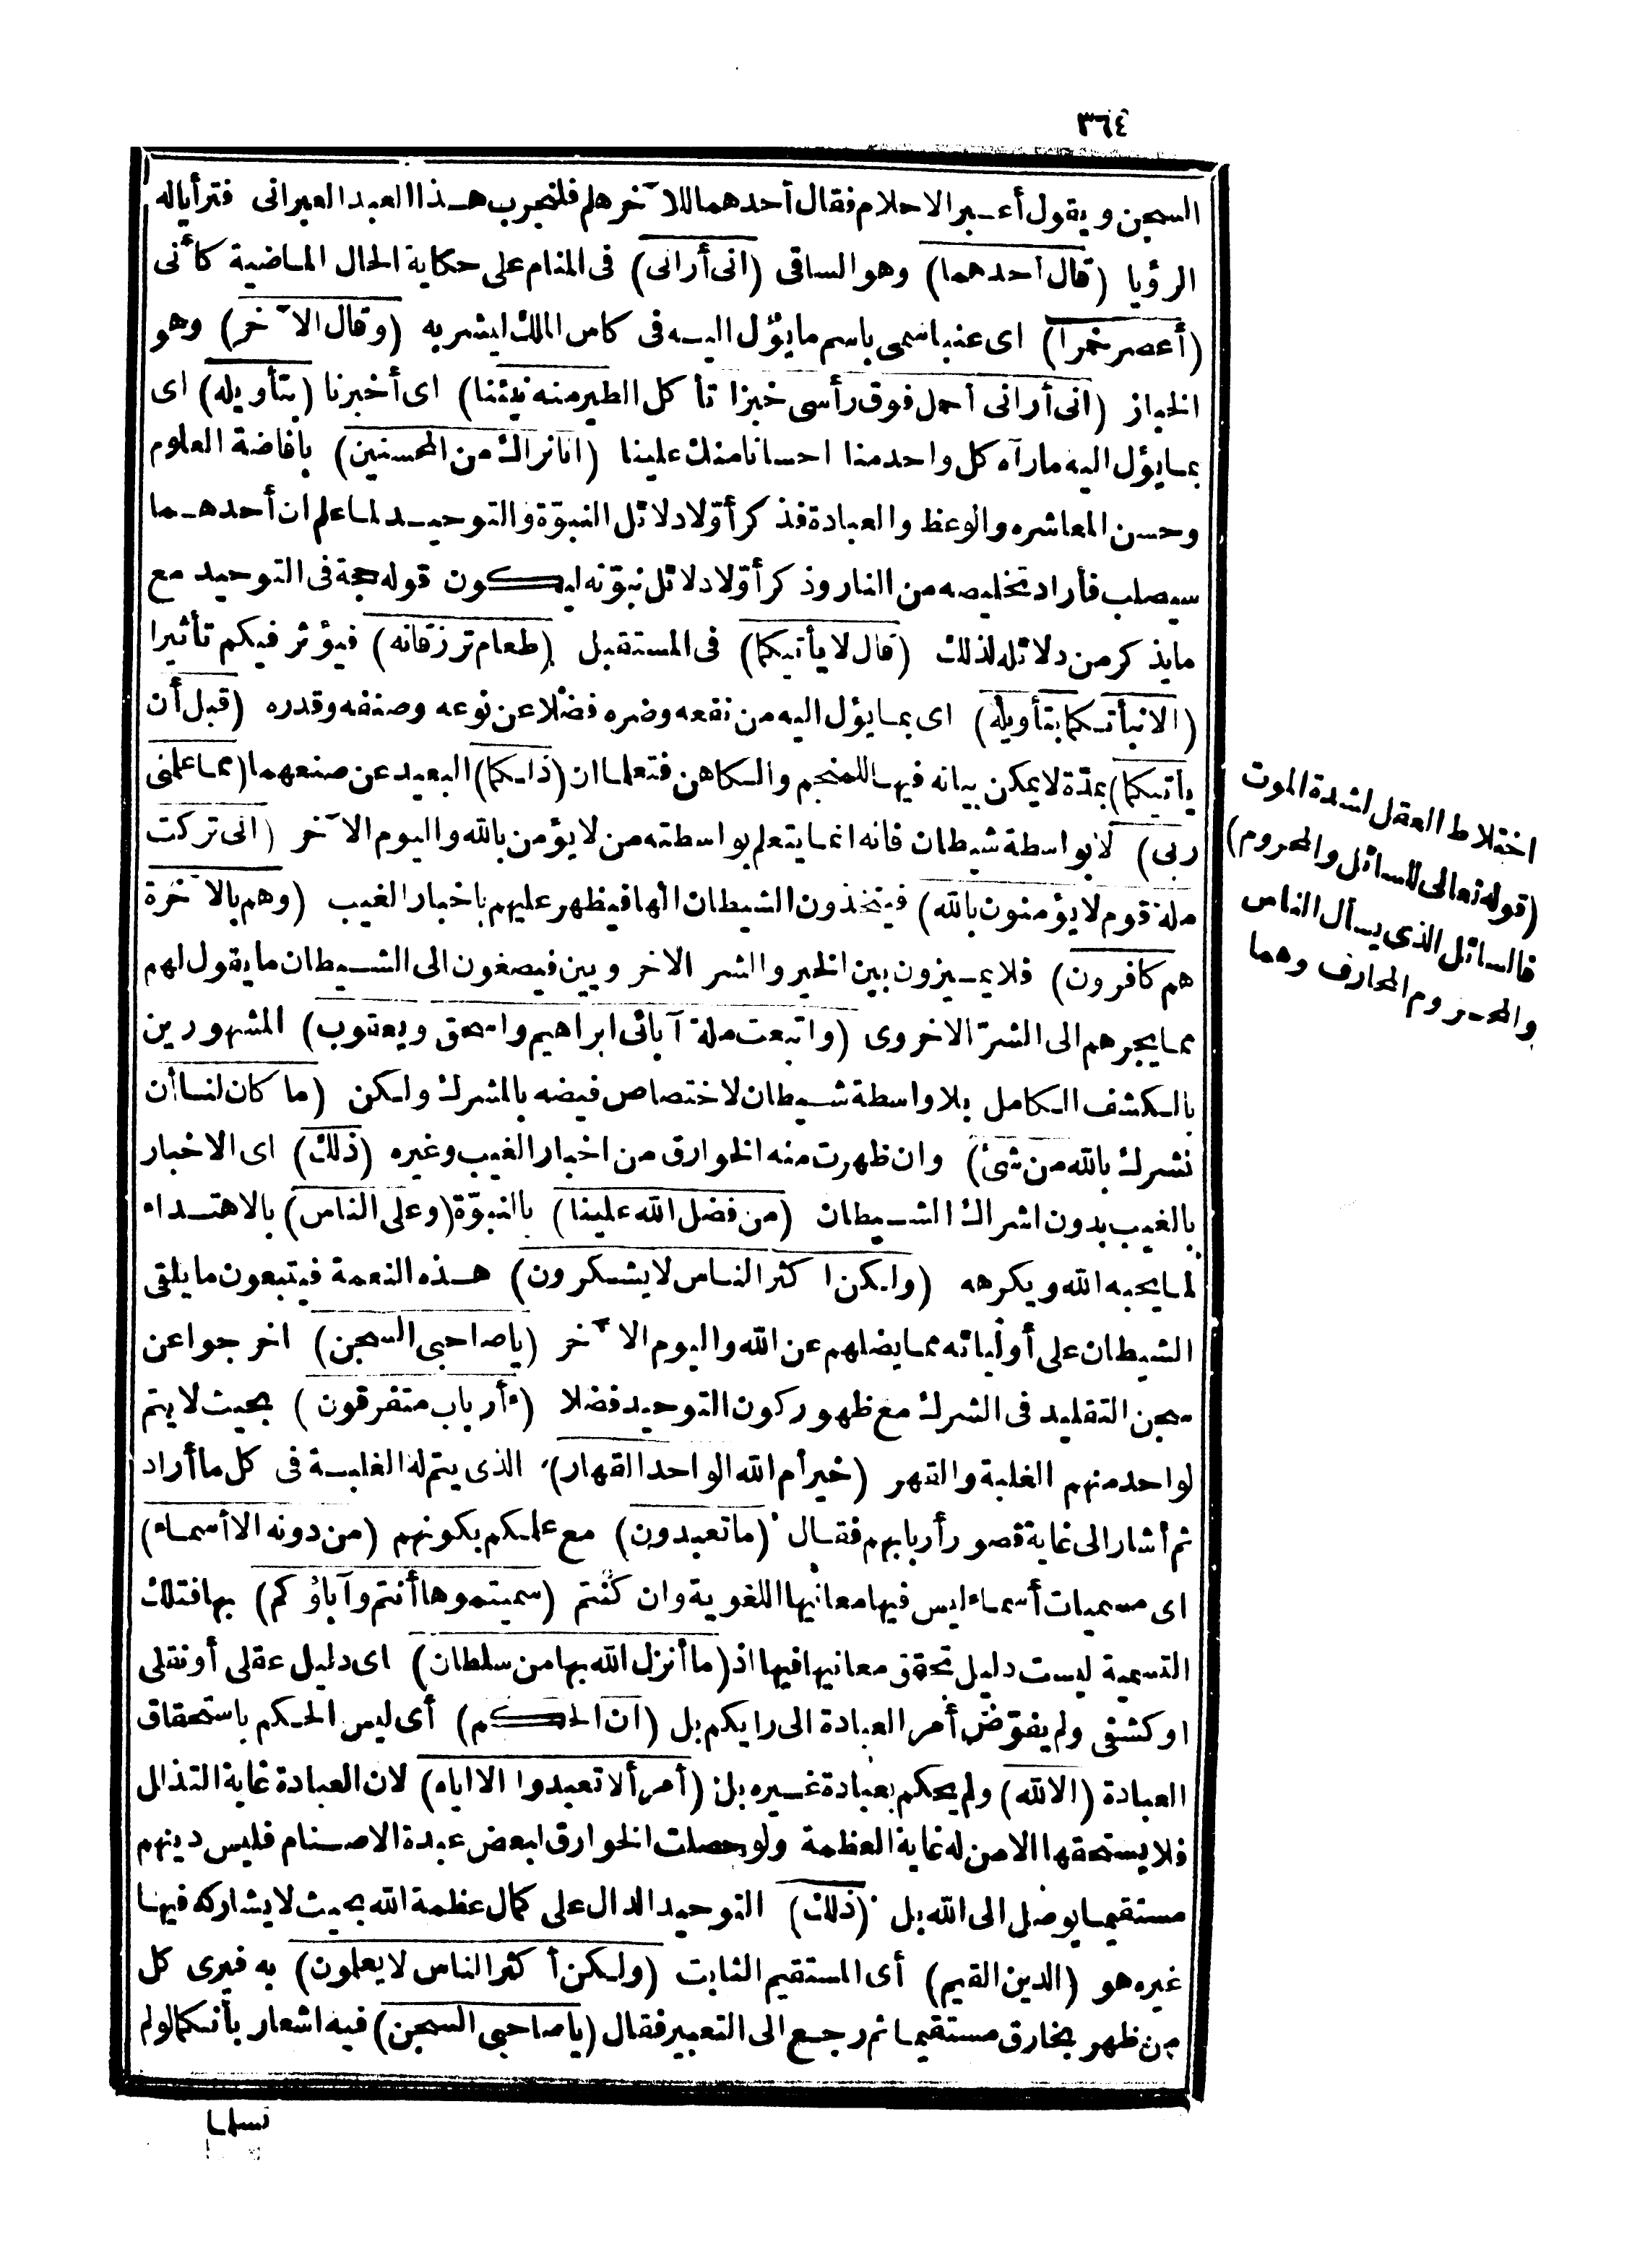 ٣٦٤
السجن ويقول أعبر الاحلام فقال أحدهما للآخر هلم فلنجرب هذا العبد العبرانى فترأياله
الرؤيا (قال احدهما) وهو الساقى (انى أرانى) فى المنام على حكاية الحال الماضية كأنى
(أعصر خمرا) اى عنبا سمى باسم ما يؤل اليه فى كاس الملك ليشربه (وقال الآخر) وهو
الخباز (انى أرانى أحمل فوق رأسى خبزا تأكل الطير منه نبئنا) اى أخبرنا (بتأويله) اى
بما يؤل اليه مارآه كل واحد منا احسانا منك علينا (انا نراك من المحسنين) بافاضة العلوم
وحسن المعاشره والوعظ والعبادة فذكر أوّلا دلائل النبوّة والتوحيد لما علم ان أحدهما
سيصلب فأراد تخليصه من النار وذكر أوّلا دلائل نبوّته ليكون قوله حجة فى التوحيد مع
مايذكر من دلائله لذلك (قال لا يأتيكما) فى المستقبل (طعام ترزقانه) فيؤثر فيكم تأثيرا
(الانبأتكما بتأويله) اى بما يؤل اليه من نفعه وضره فضلا عن نوعه وصنفه وقدره (قبل أن
يأتيكما) بمدّة لا يمكن بيانه فيها للمنجم والكاهن فتعلما ان (ذلكما) البعيد عن صنعهما (مما علمنى
ربى) لا بواسطة شيطان فانه انما يتعلم بواسطته من لا يؤمن بالله واليوم الآخر (انى تركت
ملة قوم لا يؤمنون بالله) فيتخذون الشيطان الها فيظهر عليهم باخبار الغيب (وهم بالآخرة
هم كافرون) فلا يميزون بين الخير والشر الاخرويين فيصغون الى الشيطان ما يقول لهم
مما يجرهم الى الشرّ الاخروى (واتبعت ملة آبائى ابراهيم واسحق ويعقوب) المشهورين
بالكشف الكامل بلا واسطة شيطان لاختصاص فيضه بالمشرك ولكن (ما كان لنا أن
نشرك بالله من شئ) وان ظهرت منه الخوارق من اخبار الغيب وغيره (ذلك) اى الاخبار
بالغيب بدون اشراك الشيطان (من فضل الله علينا) بالنبوّة (وعلى الناس) بالاهتداء
لما يحبه الله ويكرهه (ولكن اكثر الناس لا يشكرون) هذه النعمة فيتبعون ما يلقى
الشيطان على أوليائه مما يضلهم عن الله واليوم الآخر (يا صاحبى السجن) اخرجوا عن
سجن التقليد فى الشرك مع ظهور كون التوحيد فضلا (ءأرباب متفرقون) بحيث لا يتم
لواحد منهم الغلبة والقهر (خير أم الله الواحد القهار) الذى يتم له الغلبة فى كل ما أراد
ثم أشار الى غاية قصور أربابهم فقال (ما تعبدون) مع علمكم بكونهم (من دونه الا أسماء)
اى مسميات أسماء ليس فيها معانيها اللغوية وان كنتم (سميتموها أنتم وآباؤكم) بها فتلك
التسمية ليست دليل تحقق معانيها فيها اذ (ما أنزل الله بها من سلطان) اى دليل عقلى أو نقلى
او كشفى ولم يفوّض أمر العبادة الى رايكم بل (ان الحكم) أى ليس الحكم باستحقاق
العبادة (الا لله) ولم يحكم بعبادة غيره بل (أمر ألا تعبدوا الا اياه) لان العبادة غاية التذلل
فلا يستحقها الا من له غاية العظمة ولو حصلت الخوارق لبعض عبدة الاصنام فليس دينهم
مستقيما يوصل الى الله بل (ذلك) التوحيد الدال على كمال عظمة الله بحيث لا يشاركه فيها
غيره هو (الدين القيم) أى المستقيم الثابت (ولكن أكثر الناس لا يعلمون) به فيرى كل
من ظهر بخارق مستقيما ثم رجع الى التعبير فقال (يا صاحبى السجن) فيه اشعار بأنكما لو لم
تسلما
اختلاط العقل لشدة الموت
(قوله تعالى للسائل والمحروم)
فالسائل الذى يسأل الناس
والمحروم المحارف وهما